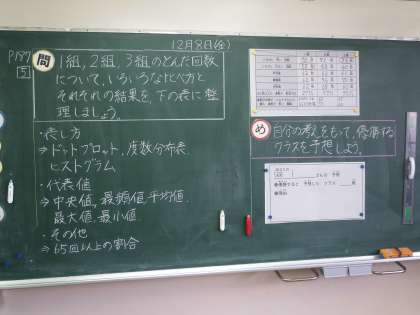 12月8日(金)
P197
5
問 1組,2組,3組のとんだ回数
について,いろいろな比べ方と
それぞれの結果を,下の表に整
理しましょう。
・表し方
⇒ドットプロット,度数分布表,
ヒストグラム
・代表値
⇒中央値,最頻値,平均値,
最大値,最小値
・その他
⇒65回以上の割合
め 自分の考えをもって,優勝する
クラスを予想しよう。